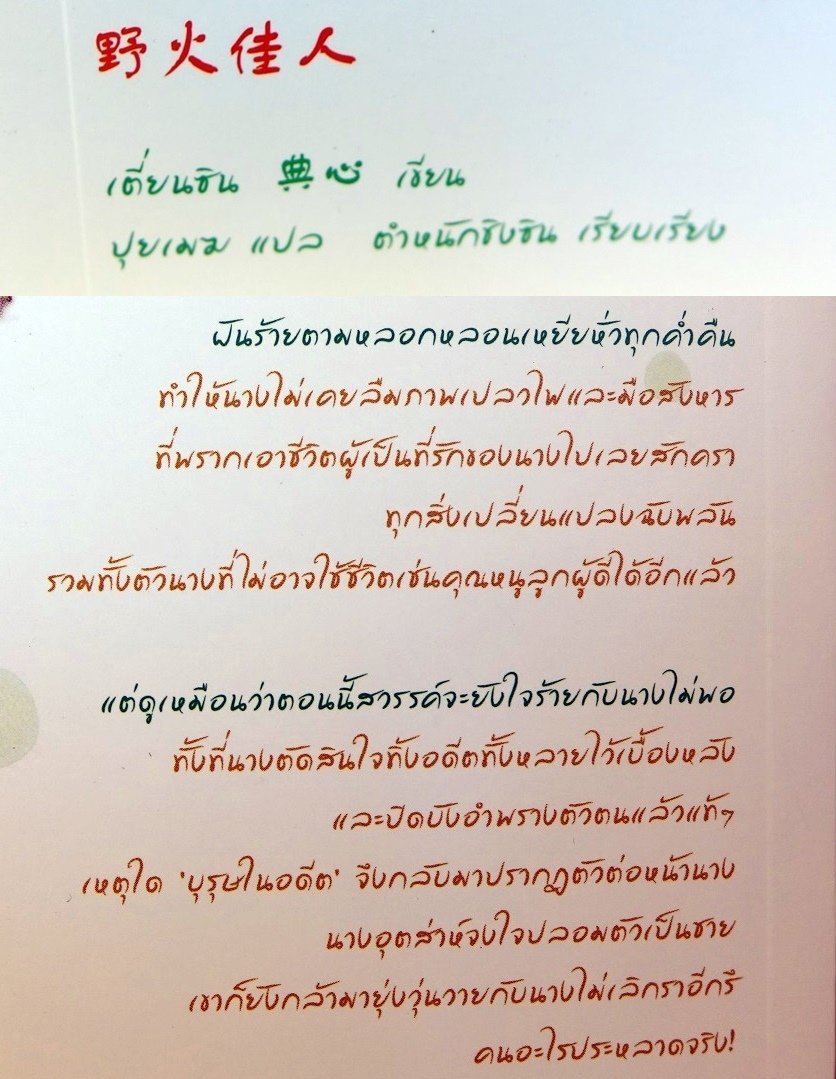 野火佳人
เตี่ยนซิน 典心 เขียน
ปุยเมฆ แปล ตำหนักชิงซิน เรียบเรียง
ฝันร้ายตามหลอกหลอนเหยียหั่วทุกค่ำคืน
ทำให้นางไม่เคยลืมภาพเปลวไฟและมือสังหาร
ที่พรากเอาชีวิตผู้เป็นที่รักของนางไปเลยสักครา
ทุกสิ่งเปลี่ยนแปลงฉับพลัน
รวมทั้งตัวนางที่ไม่อาจใช้ชีวิตเช่นคุณหนูลูกผู้ดีได้อีกแล้ว
แต่ดูเหมือนว่าตอนนี้สวรรค์จะยังใจร้ายกับนางไม่พอ
ทั้งที่นางตัดสินใจทิ้งอดีตทั้งหลายไว้เบื้องหลัง
และปิดบังอำพรางตัวตนแล้วแท้ๆ
เหตุใด 'บุรุษในอดีต' จึงกลับมาปรากฏตัวต่อหน้านาง
นางอุตส่าห์จงใจปลอมตัวเป็นชาย
เขาก็ยังกล้ามายุ่งวุ่นวายกับนางไม่เลิกราอีกรึ
คนอะไรประหลาดจริง!